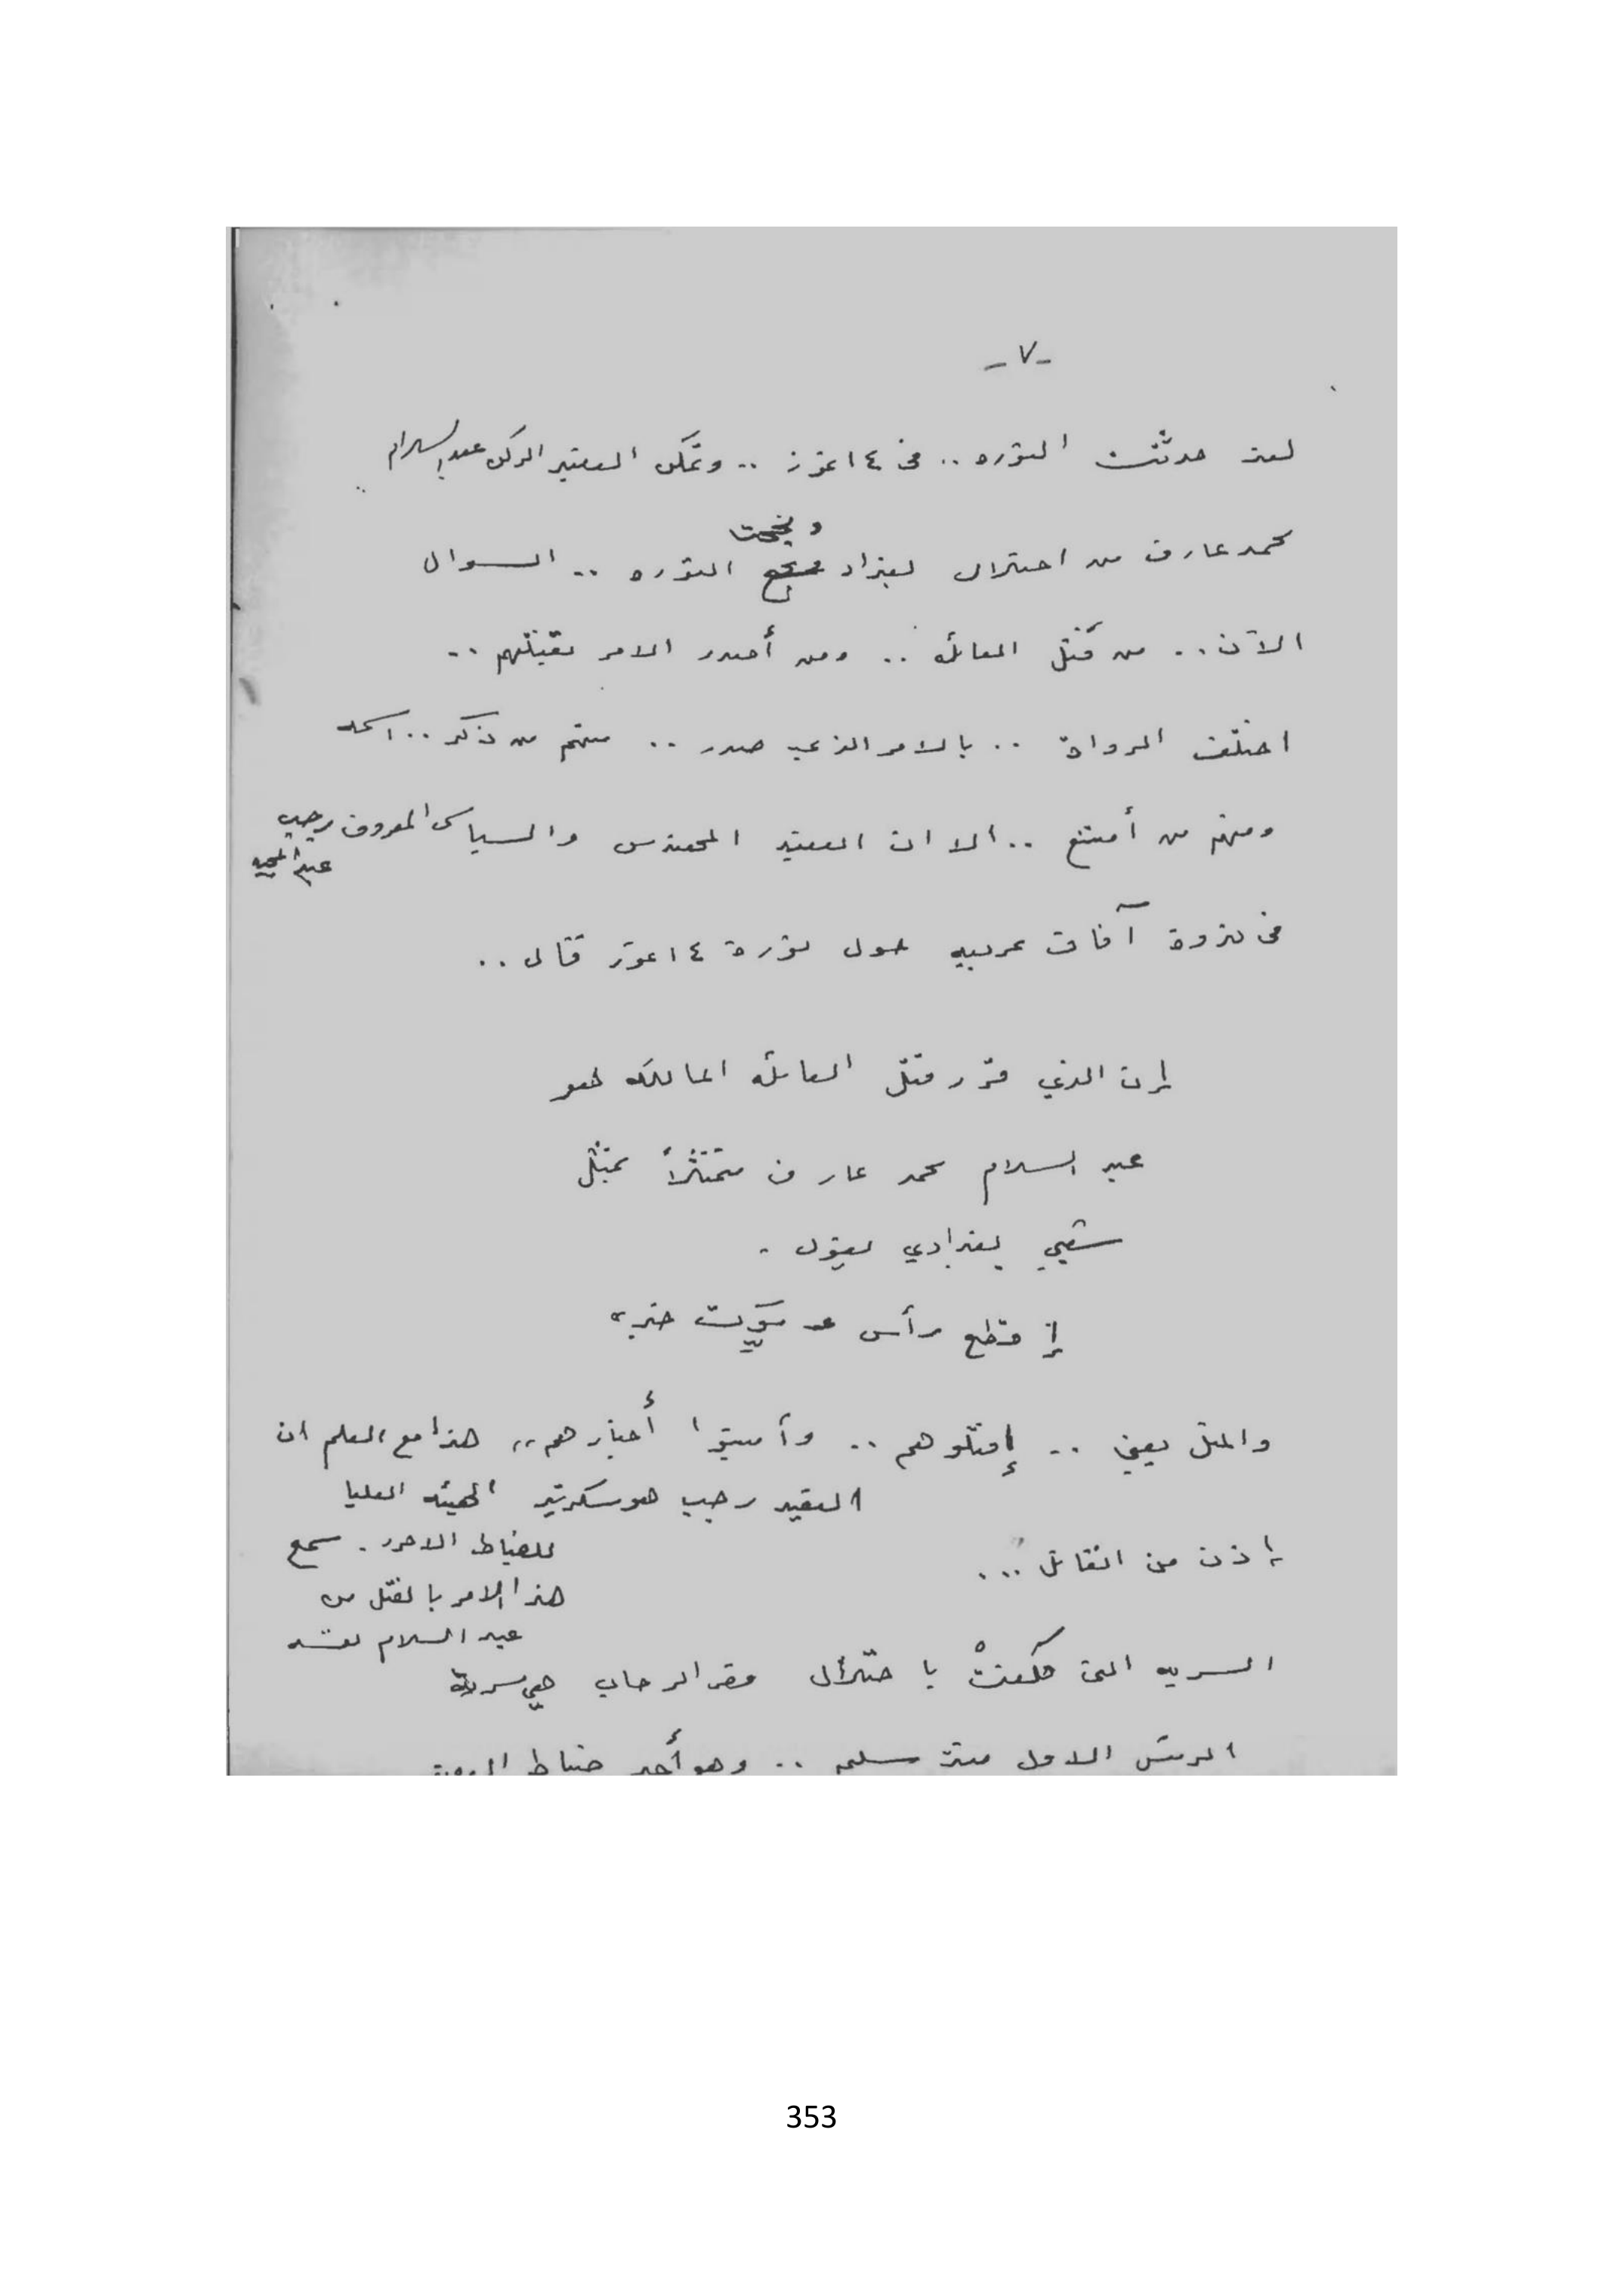 -٧-
لقد حدثت الثوره .. في ١٤ تموز .. وتمكن العقيد الركن عبد السلام
محمد عارف من احتلال بغداد ونجحت الثوره .. السوال
الآن .. من قتل العائله .. ومن أصدر الامر بقتلهم ..
اختلف الرواة .. بالامر الذي صدر .. منهم من ذكر .. اسمه
ومنهم من أمتنع .. الا ان العقيد المهندس والسياسي المعروف رجب
عبد المجيد
في ندوة آفاق عربيه حول ثورة ١٤ تموز قال ..
إن الذي قرر قتل العائله المالكه هو
عبد السلام محمد عارف متمثلاً بمثل
شعبي بغدادي يقول .
إقطع رأس وموّت خبر
والمثل يعني .. إقتلوهم .. وأميتوا أخبارهم ,, هذا مع العلم ان
العقيد رجب هو سكرتير الهيئه العليا
للضباط الاحرر . سمع
هذا الامر بالقتل من
عبد السلام نفسه
إذن من القاتل ...
السريه التي كلفتْ باحتلال قصر الرحاب هي سرية
الرئيس الاول منذر سليم .. وهو أحد ضباط
353